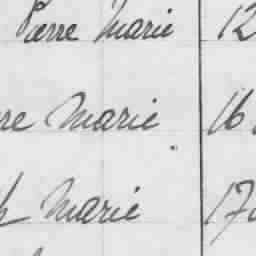 Pierre Marie 12
re Marie 16
h Marie 17